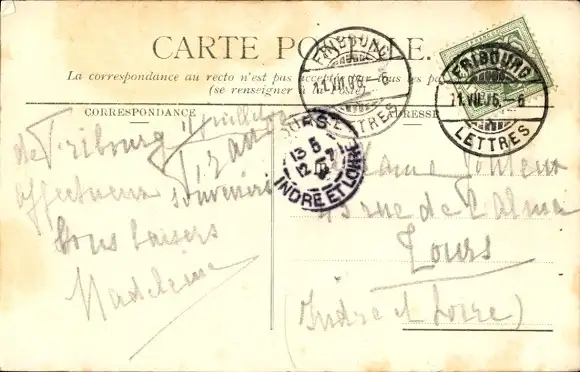 CARTE POSTALE.
La correspondance au recto n'est pas acceptée par tous les pays
(se renseigner à la Poste)
CORRESPONDANCE
ADRESSE
FRIBOURG
11.VII.06 - 6
LETTRES
FRIBOURG
11.VII.06 - 6
LETTRES
TOURS
13 5
12 - 7
INDRE ET LOIRE
11 juillet
de Fribourg
affectueux souvenirs
bons baisers
Madeleine
Madame
45 rue de l'Alma
Tours
(Indre et Loire)